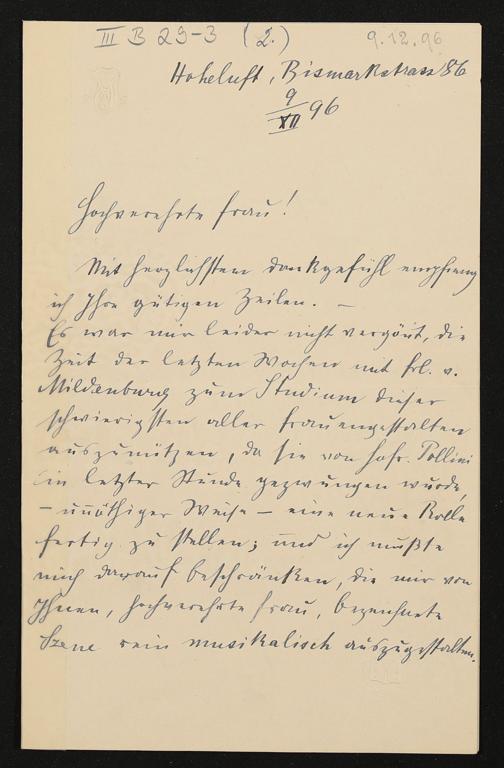 III B 29-3 (2.)
9.12.96
Hoheluft, Bismarkstrass 86
9
XII 96
Hochverehrte Frau!
Mit herzlichstem Dankgefühl empfieng
ich Ihre gütigen Zeilen. –
Es war mir leider nicht vergönt, die
Zeit der letzten Wochen mit Frl. v.
Mildenburg zum Studium dieser
schwierigsten aller Frauengestalten
auszunützen, da sie von Hofr. Pollini
in letzter Stunde gezwungen wurde,
– unnöthiger Weise – eine neue Rolle
fertig zu stellen; und ich mußte
mich darauf beschränken, die mir von
Ihnen, hochverehrte Frau, bezeichnete
Szene rein musikalisch auszugestalten.